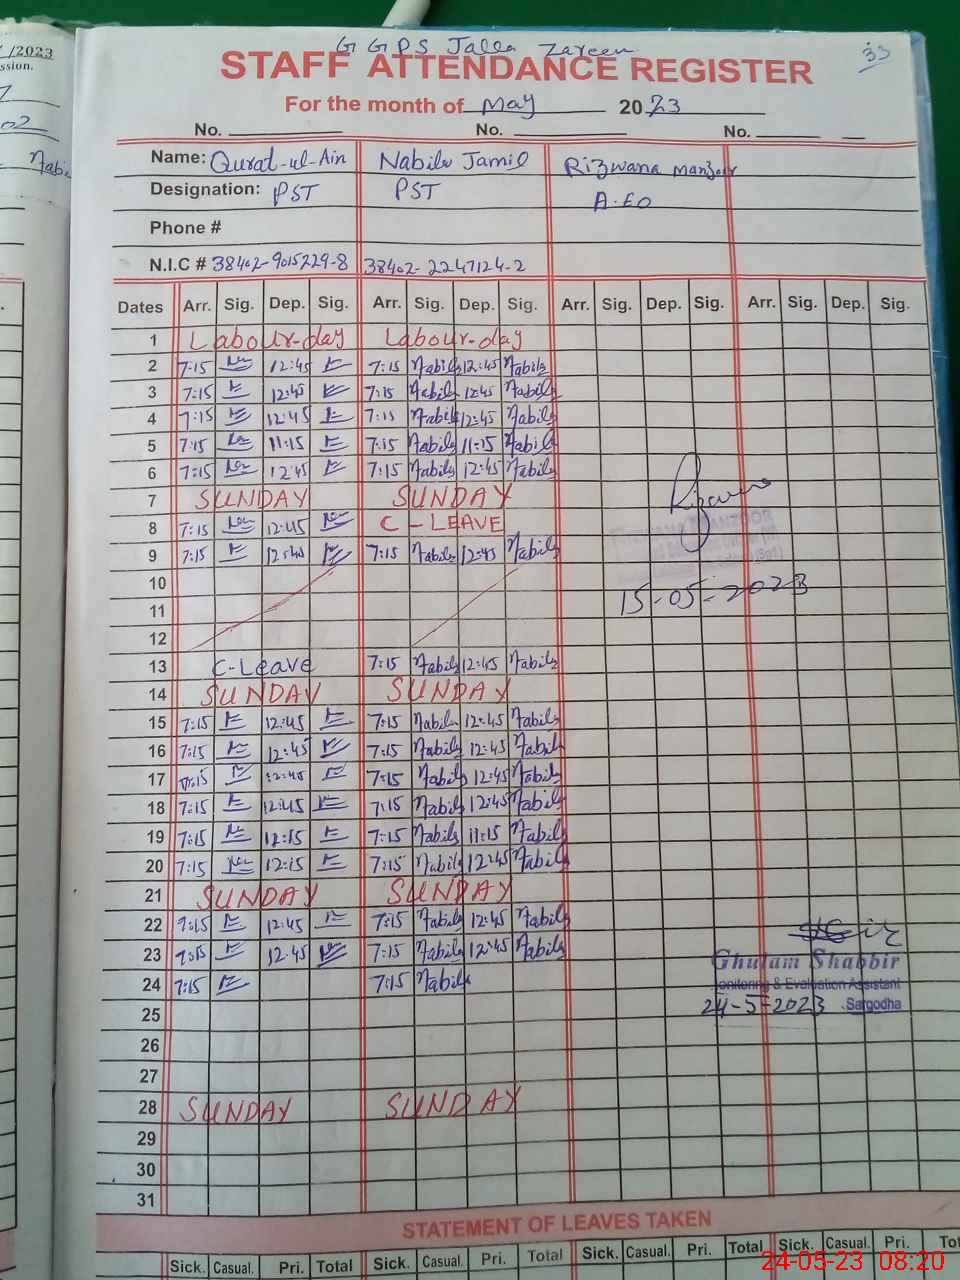 /2023
ssion.
G G P S Jalla Zareen
33
STAFF ATTENDANCE REGISTER
For the month of May 2023
No. No. No.
Name: Qurat-ul-Ain Nabila Jamil Rizwana Manzoor
Designation: PST PST A.EO
Phone #
N.I.C # 38402-9015229-8 38402-2247124-2
Dates Arr. Sig. Dep. Sig. Arr. Sig. Dep. Sig. Arr. Sig. Dep. Sig. Arr. Sig. Dep. Sig.
1 Labour-day Labour-day
2 7:15 12:45 7:15 Nabila 12:45 Nabila
3 7:15 12:45 7:15 Nabila 12:45 Nabila
4 7:15 12:45 7:15 Nabila 12:45 Nabila
5 7:15 11:15 7:15 Nabila 11:15 Nabila
6 7:15 12:45 7:15 Nabila 12:45 Nabila
7 SUNDAY SUNDAY
8 7:15 12:45 C-LEAVE
9 7:15 12:45 7:15 Nabila 12:45 Nabila
10
11 15-05-2023
12
13 C-Leave 7:15 Nabila 12:45 Nabila
14 SUNDAY SUNDAY
15 7:15 12:45 7:15 Nabila 12:45 Nabila
16 7:15 12:45 7:15 Nabila 12:45 Nabila
17 7:15 12:45 7:15 Nabila 12:45 Nabila
18 7:15 12:45 7:15 Nabila 12:45 Nabila
19 7:15 12:15 7:15 Nabila 11:15 Nabila
20 7:15 12:15 7:15 Nabila 12:45 Nabila
21 SUNDAY SUNDAY
22 7:15 12:45 7:15 Nabila 12:45 Nabila
23 7:15 12:45 7:15 Nabila 12:45 Nabila
Ghulam Shabbir
24 7:15 7:15 Nabila
onitoring & Evaluation Assistant
24-5-2023 Sargodha
25
26
27
28 SUNDAY SUNDAY
29
30
31
STATEMENT OF LEAVES TAKEN
Sick. Casual. Pri. Total Sick. Casual. Pri. Total Sick. Casual. Pri. Total Sick. Casual. Pri. Tot
24-05-23 08:20